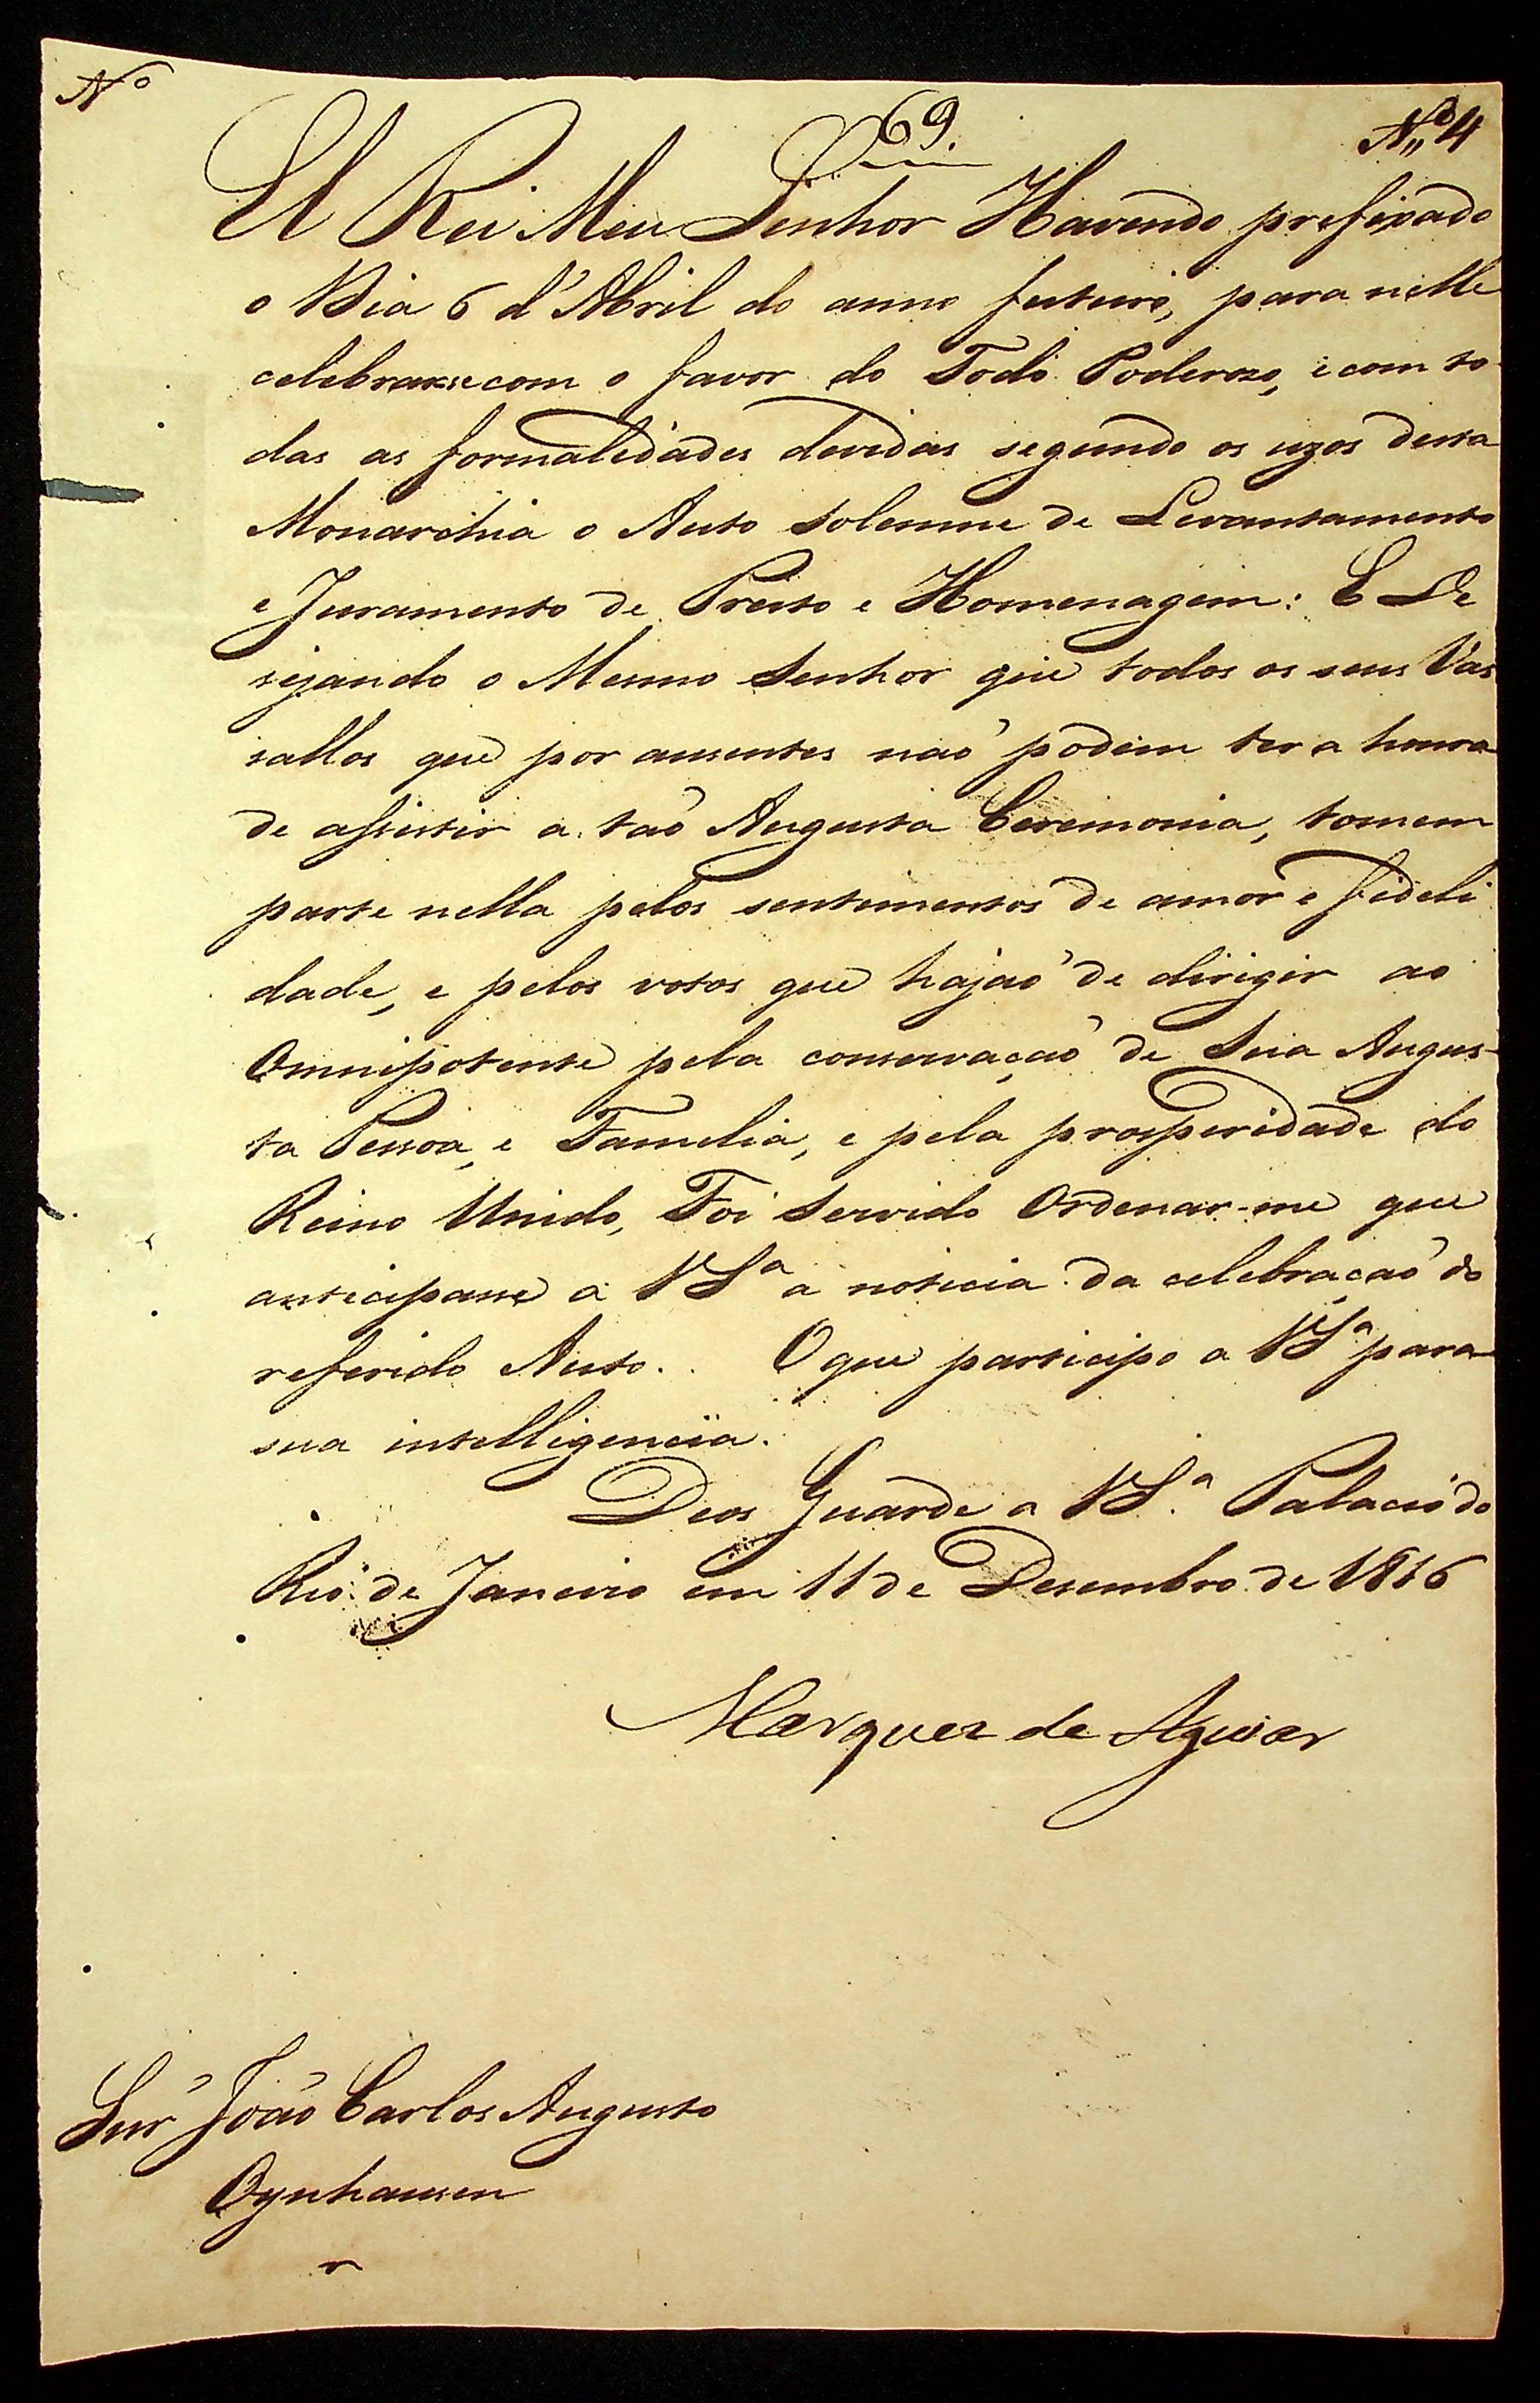 Nº
69.
Nº 4
El Rei Meu Senhor Havendo prefixado
o Dia 6 d'Abril do anno futuro, para nelle
celebrarse com o favor do Todo Poderozo, e com to-
das as formalidades devidas segundo os uzos desta
Monarchia o Auto solemne de Levantamento
e Juramento de Preito e Homenagem: E De
sejando o Mesmo Senhor que todos os seus Vas
sallos que por ausentes naõ podem ter a honra
de assistir a taõ Augusta Ceremonia, tomem
parte nella pelos sentimentos de amor e fideli
dade, e pelos votos que hajaõ de dirigir ao
Omnipotente pela conservaçaõ de Sua Augus-
ta Pessoa, e Familia, e pela prosperidade do
Reino Unido, Foi Servido Ordenar-me que
anticipasse a VSª a noticia da celebraçaõ do
referido Auto. O que participo a VSª para
sua intelligencia.
Deos Guarde a VS.ª Palacio do
Rio de Janeiro em 11 de Desembro de 1816
Marquez de Aguiar
Snr João Carlos Augusto
Oynhausen